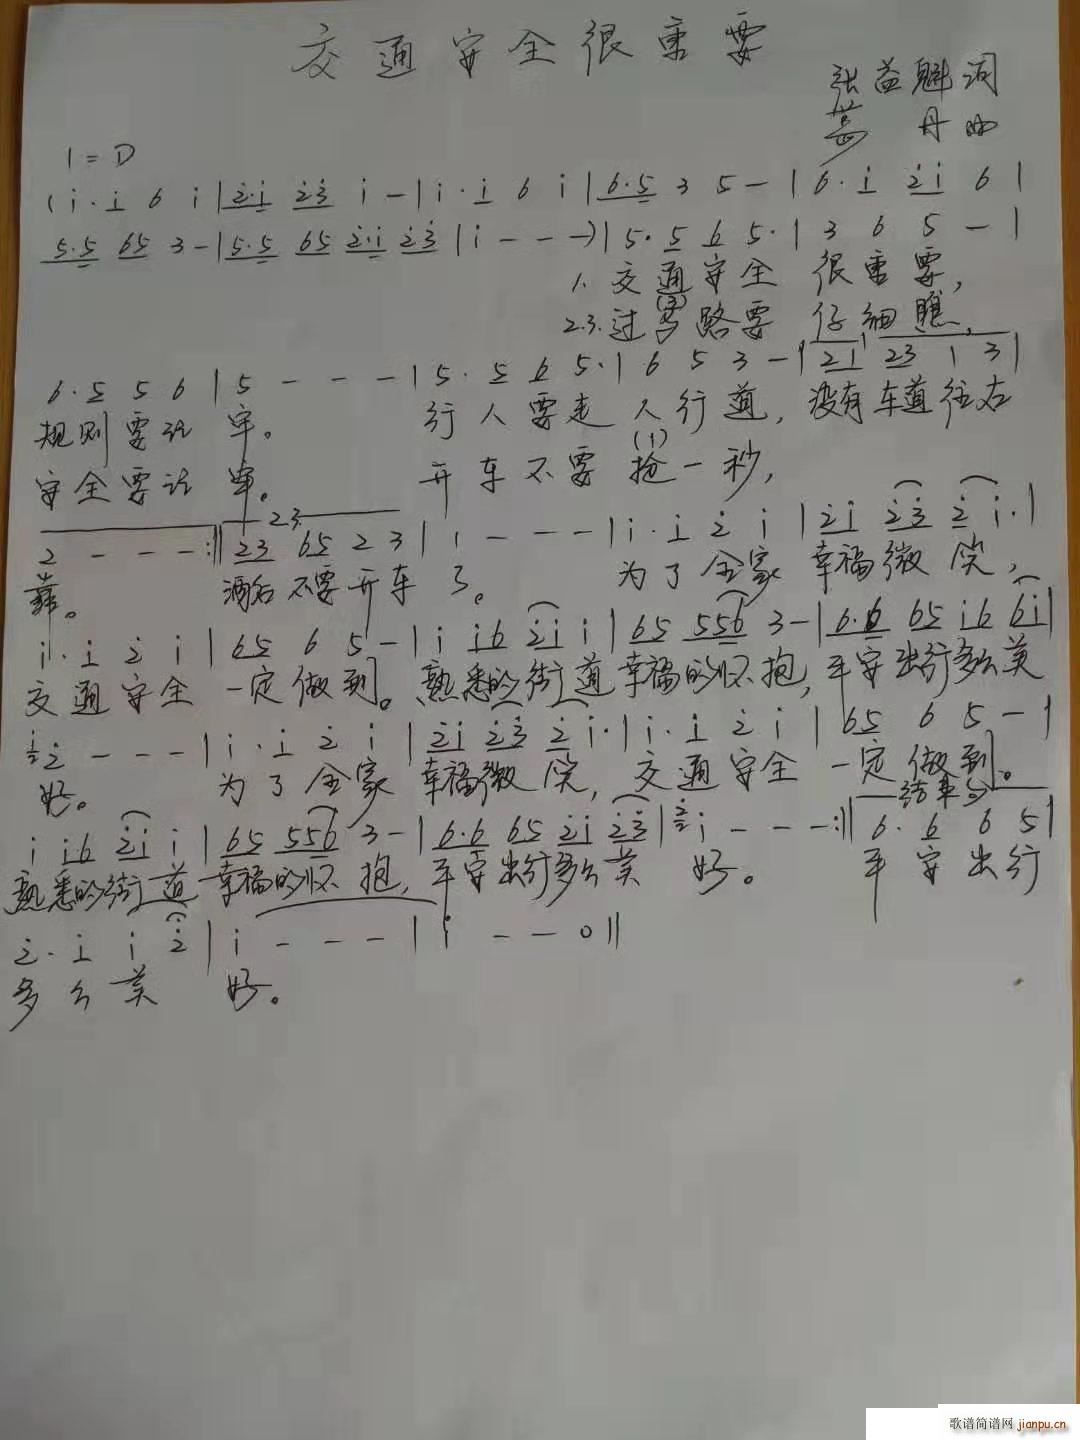 交通安全很重要
张益魁 词
丹 曲
1=D
(i·i 6 i|2·i 23 i -|i·i 6 i|6·5 3 5 -|6·i 2i 6|
5·5 65 3 -|5·5 65 2·i 23|i - - -)|5·5 6 5·|3 6 5 -|
1. 交通安全 很重要,
(3)
2.3.过马路要 仔细瞧,
6·5 5 6|5 - - -|5·5 6 5·|6 5 3 -|21 23 1 3|
规则要记牢。 行人要走 人行道, 没有车道往右
(1)
安全要记牢。 开车不要抢一秒,
2.3.
2 - - -:||23 65 2 3|1 - - -|i·i 2 i|2i 23 2 i·|
靠。 酒后不要开车了。 为了全家 幸福微笑,
i·i 2 i|65 6 5 -|i i6 2i i|65 556 3 -|6·6 65 i6 6i|
交通安全 一定做到。熟悉的街道幸福的怀抱,平安出行多么美
2 - - -|i·i 2 i|2i 23 2 i·|i·i 2 i|65 6 5 -|
好。 为了全家 幸福微笑, 交通安全 一定做到。
结束句
i i6 2i i|65 556 3 -|6·6 65 2i 23|i - - -:||6·6 6 5|
熟悉的街道幸福的怀抱,平安出行多么美 好。 平安出行
2·i i 2|i - - -|i - - 0||
多么美 好。
歌谱简谱网 jianpu.cn